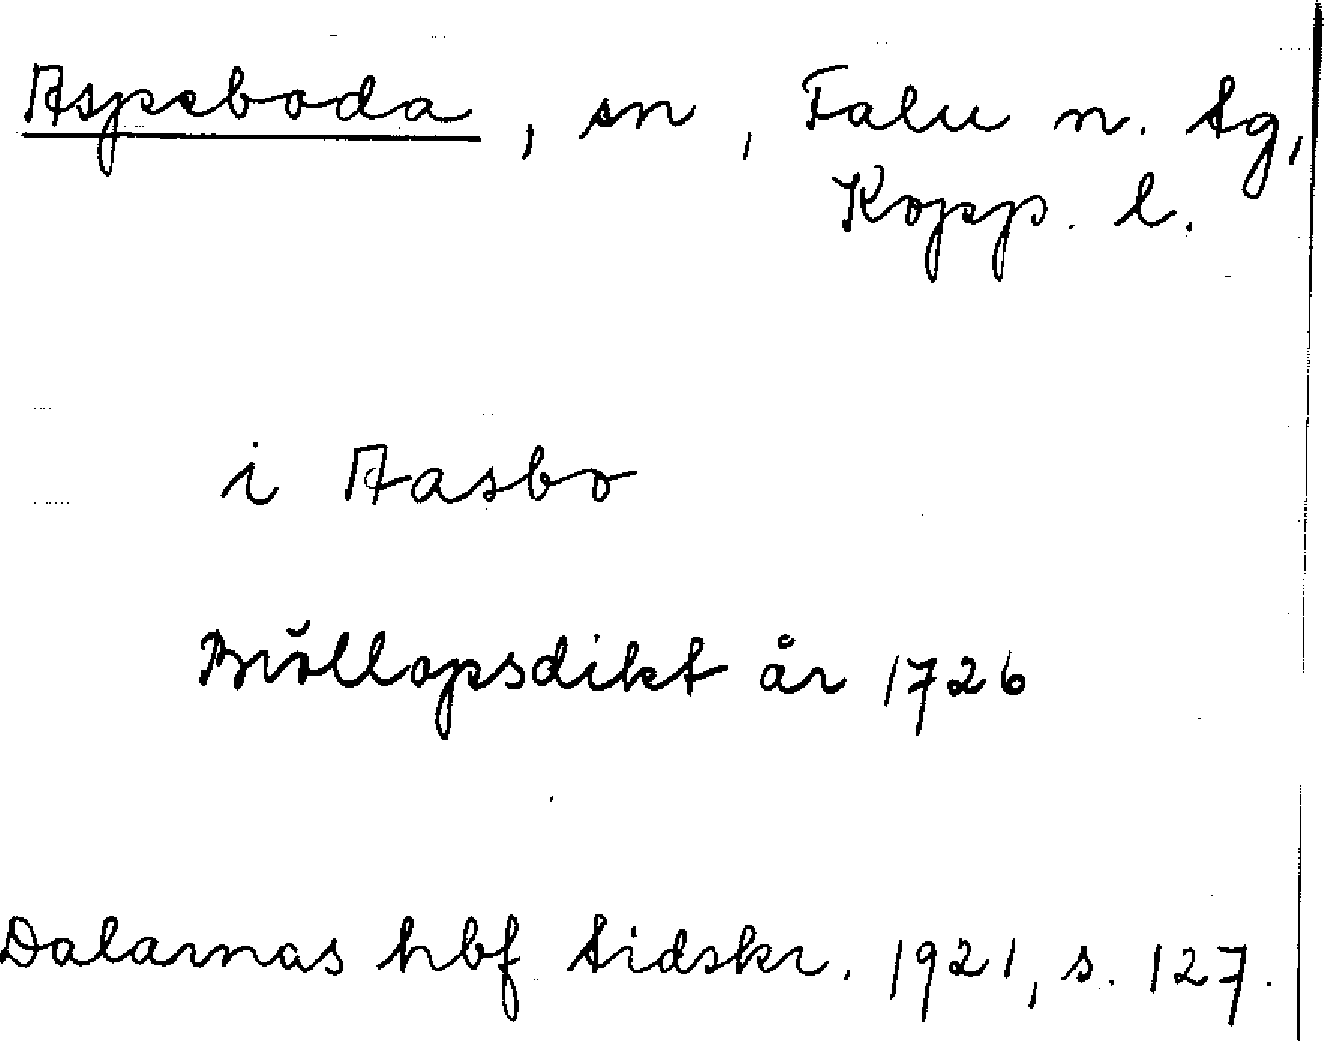 Aspeboda, sn, Falu n. tg,
Kopp. l.
i Aasbo
Bröllopsdikt år 1726
Dalarnas hbf tidskr. 1921, s. 127.